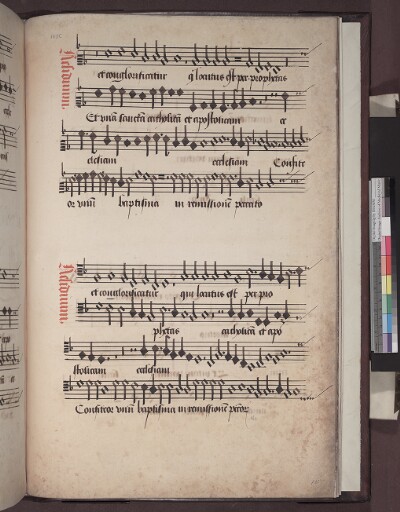 et conglorificatur q locutus est per prophetas
Et unã sanctã catholicã et apostolicam et
clesiam ecclesiam Confite
or unũ baptisma in remissionẽ peccato
et conglorificatur qui locutus est per pro
phetas catholicã et apo
stolicam ecclesiam
Confiteor unũ baptisma in remissionẽ